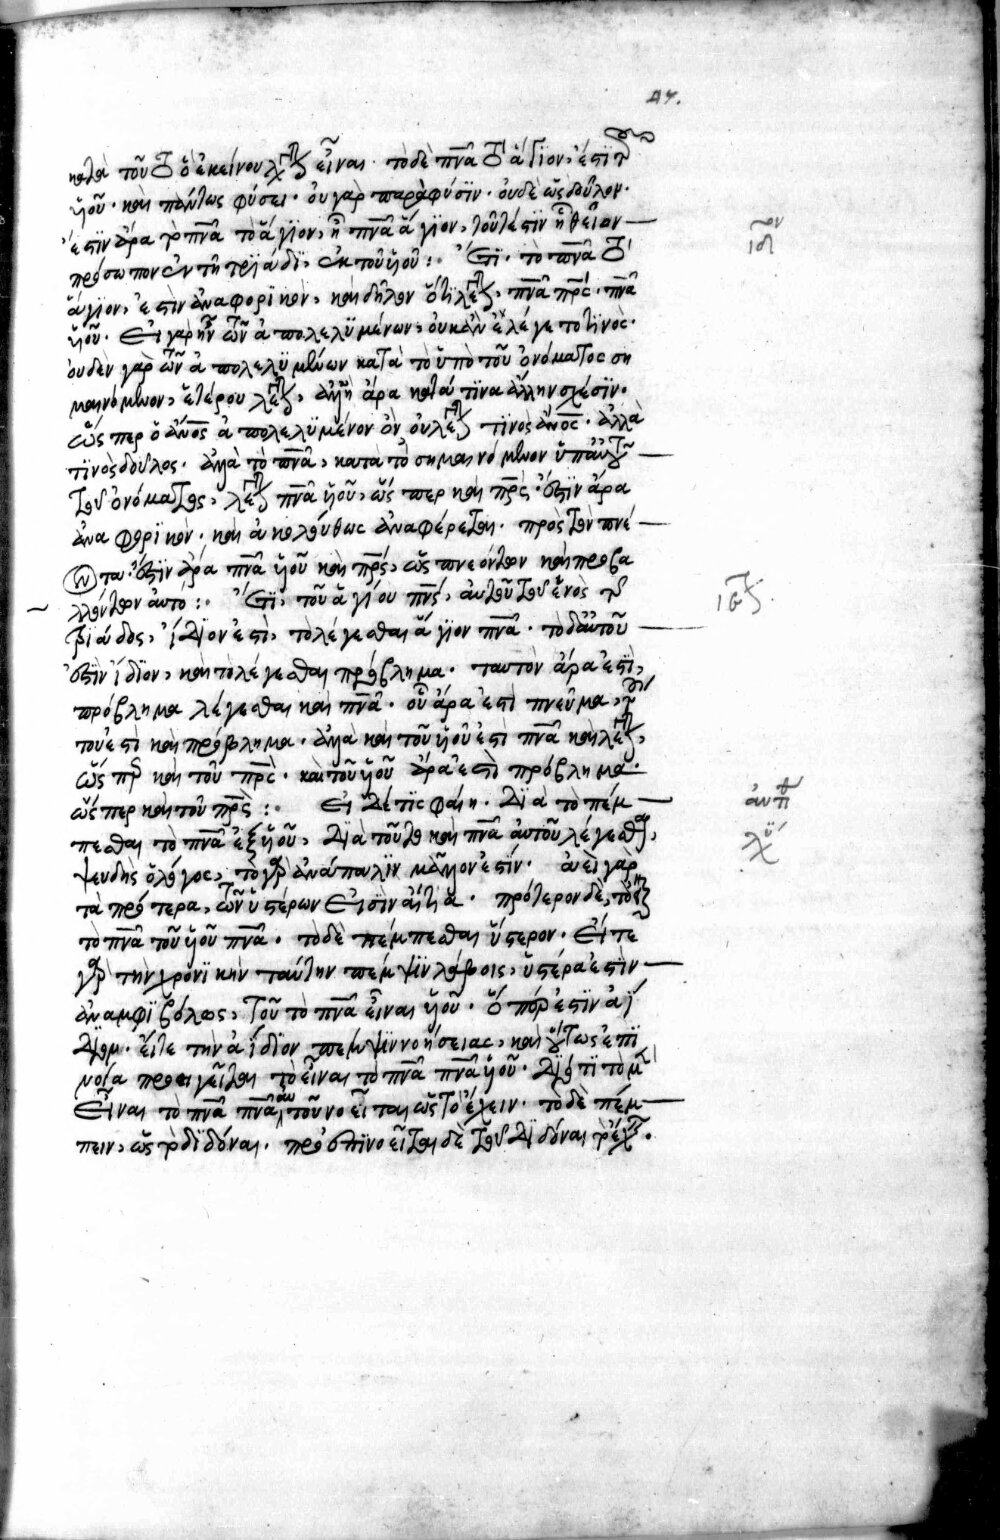 47.
κατα τοῦ ὃ ἐκείνου λεγ εἶναι. τὸ δὲ πνᾶ τὸ ἅγιον, ἐστὶ τοῦ
υἱοῦ. καὶ πάντως φύσει. οὐ γαρ παρὰ φύσϊν. οὐδὲ ὡς δοῦλον.
ἔστιν ἄρα τὸ πνᾶ τὸ ἅγϊον, ἢ πνᾶ ἅγϊον, τουτέστϊν ἢ θεῖον
πρόσωπον ἐν τῆ τρϊάδϊ, ἐκ τοῦ υἱοῦ : Ἔτϊ. τὸ πνᾶ τὸ
ἅγϊον, ἐστὶν ἀναφορϊκὸν, καὶ δῆλον ὅτϊ λέγ, πνᾶ πρς. πνᾶ
υἱοῦ. Εἰ γὰρ ἦν τῶν ἀπολελϋμένων, οὐκ ἂν ἐλέγετο τϊνὸς.
οὐδὲν γαρ τῶν ἀπολελϋμένων κατὰ τὸ ὑπὸ τοῦ ὀνόματος ση
μαινόμενον, ἑτέρου λέγ, ἀλλ' ἢ ἄρα κατά τϊνα ἄλλην σχέσϊν.
ὥς περ ὁ ἄνος ἀπολελϋμένον ὂν οὐ λέγ τϊνὸς ἄνος. ἀλλὰ
τϊνὸς δοῦλος. ἀλλὰ τὸ πνᾶ, κατα τὸ σημαινόμενον ὑπ' αὐτοῦ
τοῦ ὀνόματος, λέγ πνᾶ υἱοῦ, ὥς περ καὶ πρς. ἔστϊν ἄρα
ἀναφορϊκὸν. καὶ ἀκολούθως ἀναφέρεται. πρὸς τὸν πνέ
οντα. ἔστϊν ἄρα πνᾶ υἱοῦ καὶ πρς, ὡς πνεόντων καὶ προβα
λλόντων αὐτό : Ἔτϊ, τοῦ ἁγίου πνς, αὐτοῦ τοῦ ἑνὸς τῆς
τρϊάδος, ἴδϊον ἐστὶ, τὸ λέγεσθαι ἅγϊον πνᾶ. τὸ δ' αὐτοῦ
ἐστϊν ἴδϊον, καὶ τὸ λέγεσθαι πρόβλημα. ταυτὸν ἄρα ἐστϊ,
πρόβλημα λέγεσθαι καὶ πνᾶ. οὗ ἄρα ἐστὶ πνεῦμα,
τούτου ἐστὶ καὶ πρόβλημα. ἀλλὰ καὶ τοῦ υἱοῦ ἐστὶ πνᾶ καὶ λέγ,
ὥς πρ καὶ τοῦ πρς. καὶ τοῦ υἱοῦ ἄρα ἐστὶ πρόβλημα.
ὥς περ καὶ τοῦ πρς : Εἰ δέ τις φαίη. δϊὰ τὸ πέμ
πεσθαι τὸ πνᾶ ἐξ υἱοῦ, δϊὰ τοῦτο καὶ πνᾶ αὐτοῦ λέγεσθαι,
ψευδὴς ὁ λόγος, τὸ γὰρ ἀνάπαλϊν μᾶλλον ἐστϊν. ἀεὶ γὰρ
τὰ πρότερα, τῶν ὑστέρων εἰσϊν αἴτια. πρότερον δὲ,
τὸ πνᾶ τοῦ υἱοῦ πνᾶ. τὸ δὲ πέμπεσθαι ὕστερον. Εἴτε
γὰρ τὴν χρονϊκὴν ταύτην πέμψϊν λάβοις, ὑστέρα ἐστὶν
ἀναμφϊβόλως, τοῦ τὸ πνᾶ εἶναι υἱοῦ. ὅπερ ἐστϊν ἀϊ
δϊον. εἴτε τὴν ἀΐδϊον πέμψϊν νοήσειας, καὶ οὕτως ἐπϊ
νοία προηγεῖται τὸ εἶναι τὸ πνᾶ πνᾶ υἱοῦ. δϊότι τὸ μὲν
εἶναι τὸ πνᾶ πνᾶ αὐτοῦ νοεῖται ὡς τὸ ἔχειν. τὸ δὲ πέμ
πειν, ὡς τὸ δϊδόναι. προεπϊνοεῖται δὲ τοῦ δϊδόναι τὸ ἔχειν.